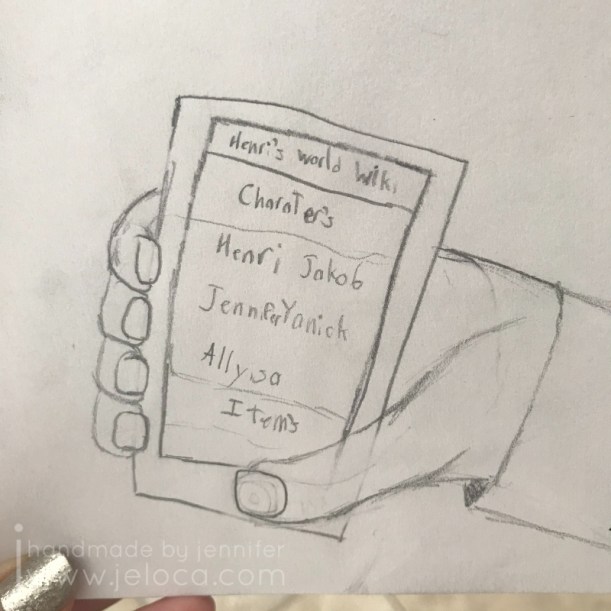 Henri's world Wiki
Charater's
Henri Jakob
Jennifer Yanick
Allysa
Items
handmade by jennifer
www.jeloca.com